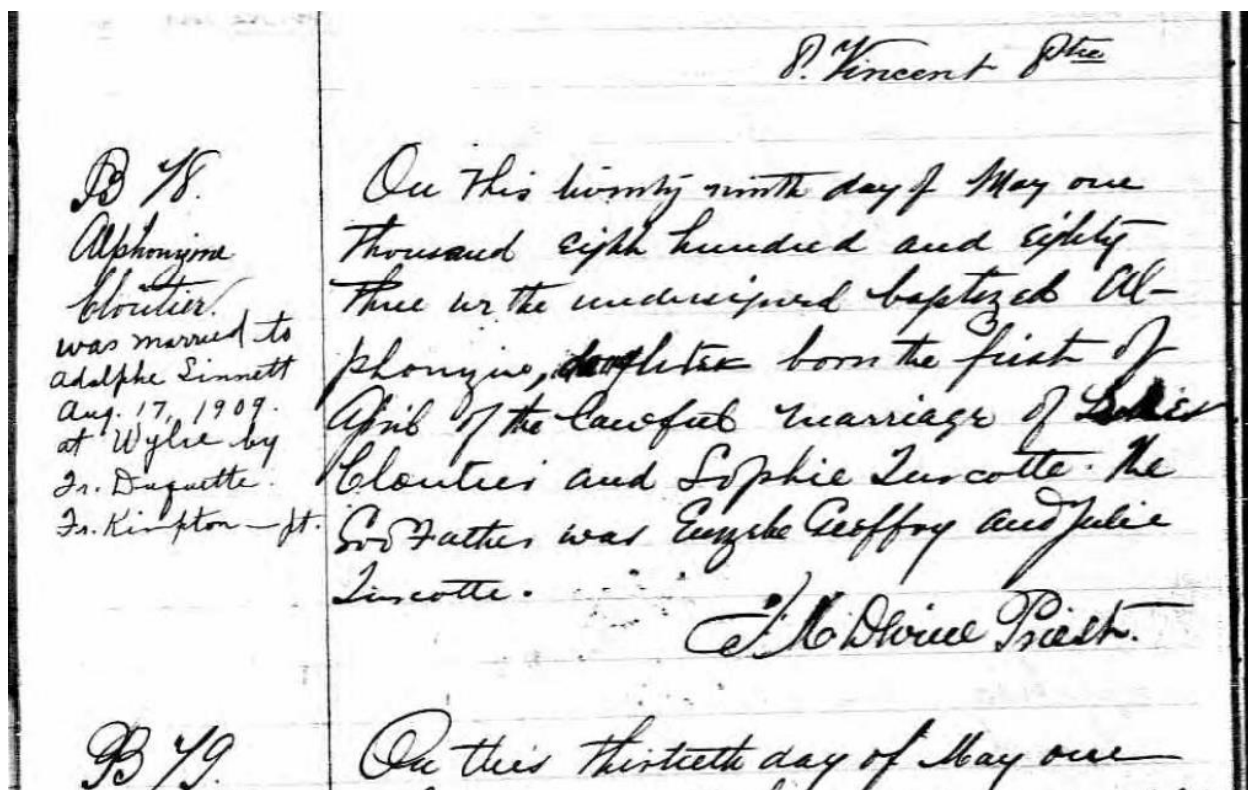 P. Vincent Ptre
B 78.
Alphonsine
Cloutier.
was married to
Adolphe Sinnett
Aug. 17, 1909.
at Wylie by
Fr. Duquette.
Fr. Kimpton — pt.
On this twenty ninth day of May one
thousand eight hundred and eighty
three we the undersigned baptized Al-
phonsine, daughter born the first of
April of the lawful marriage of
Cloutier and Sophie Turcotte. The
God Father was Euzebe Geoffroy and Julie
Turcotte.
Priest.
B 79.
On this thirtieth day of May one